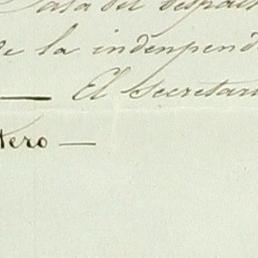 Casa del despach
de la indenpend
— El Secretari
tero —